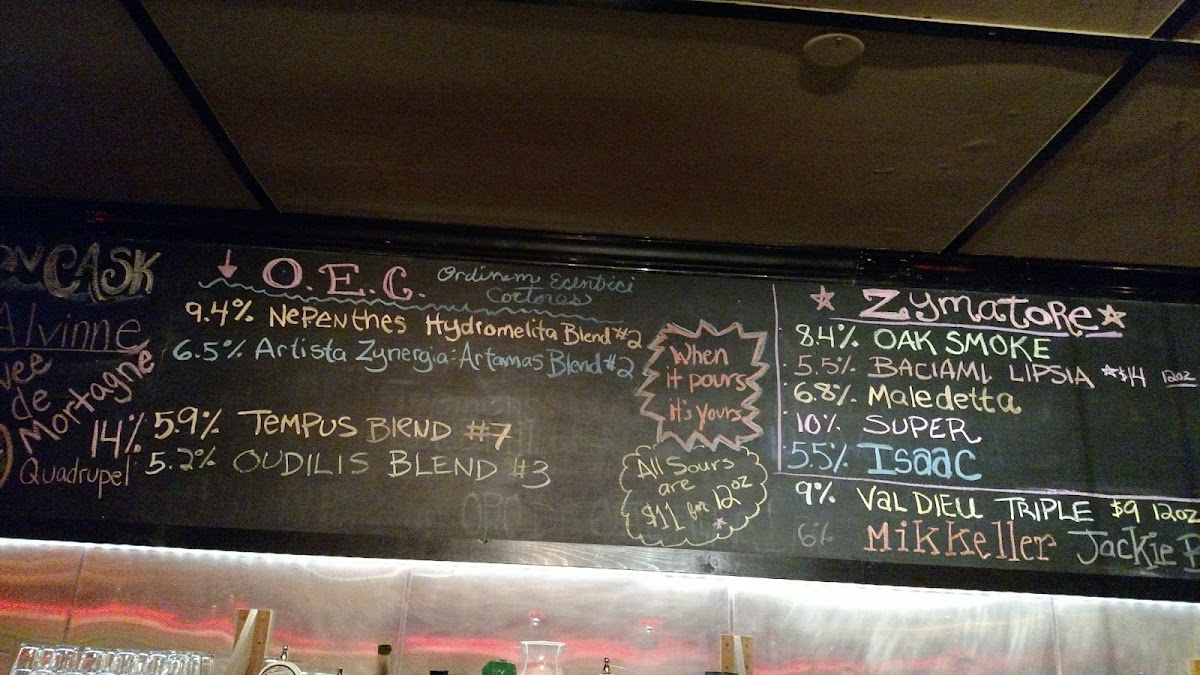 ON CASK
Alvinne
de
Mortagne
14%
Quadrupel
O.E.C. Ordinem Ecentrici
Coctores
9.4% Nepenthes Hydromelita Blend #2
6.5% Artista Zynergia: Artamas Blend #2
5.9% TEMPUS BLEND #7
5.2% OUDILIS BLEND #3
When
it pours
it's yours
All Sours
are
$11 for 12oz
Zymatore
8.4% OAK SMOKE
5.5% BACIAMI LIPSIA *$14 12oz
6.8% Maledetta
10% SUPER
5.5% Isaac
9% Val DIEU TRIPLE $9 12oz
6% Mikkeller Jackie